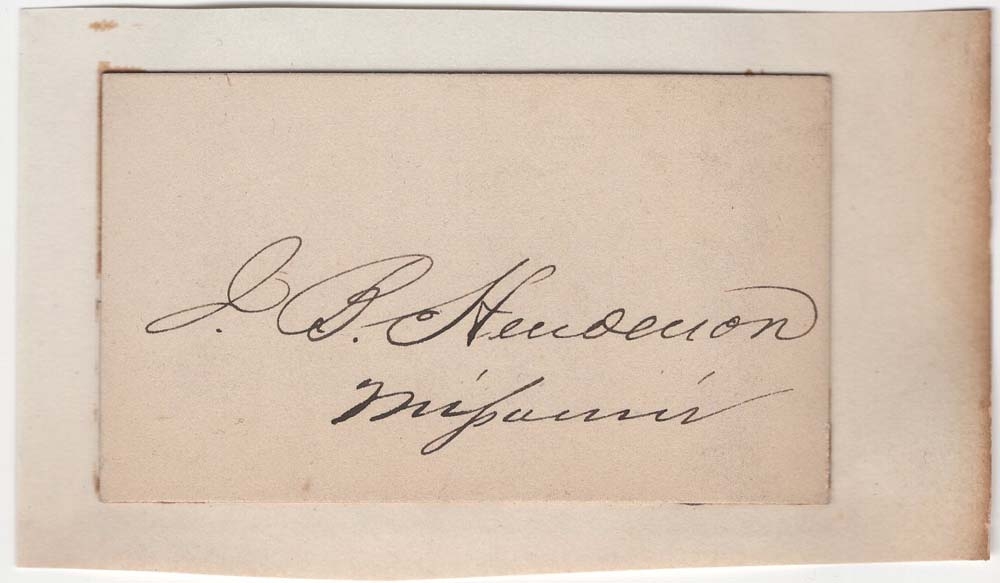 J. B. Henderson
Missouri